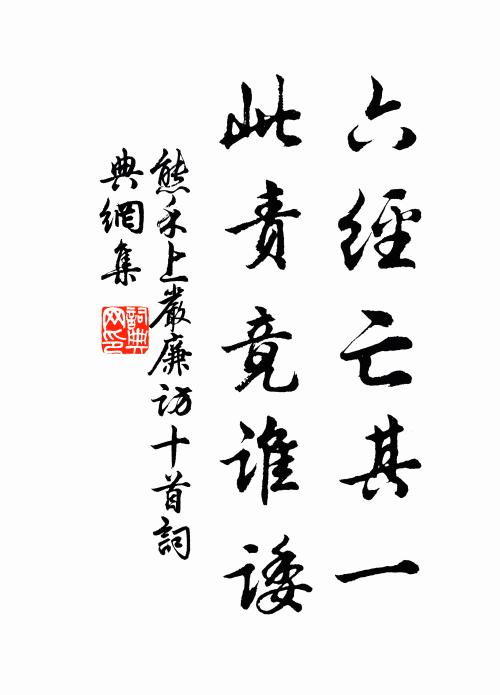 六經亡其一
此責竟誰諉
熊禾上嚴廉訪十首詞
典網集
詞典
网印